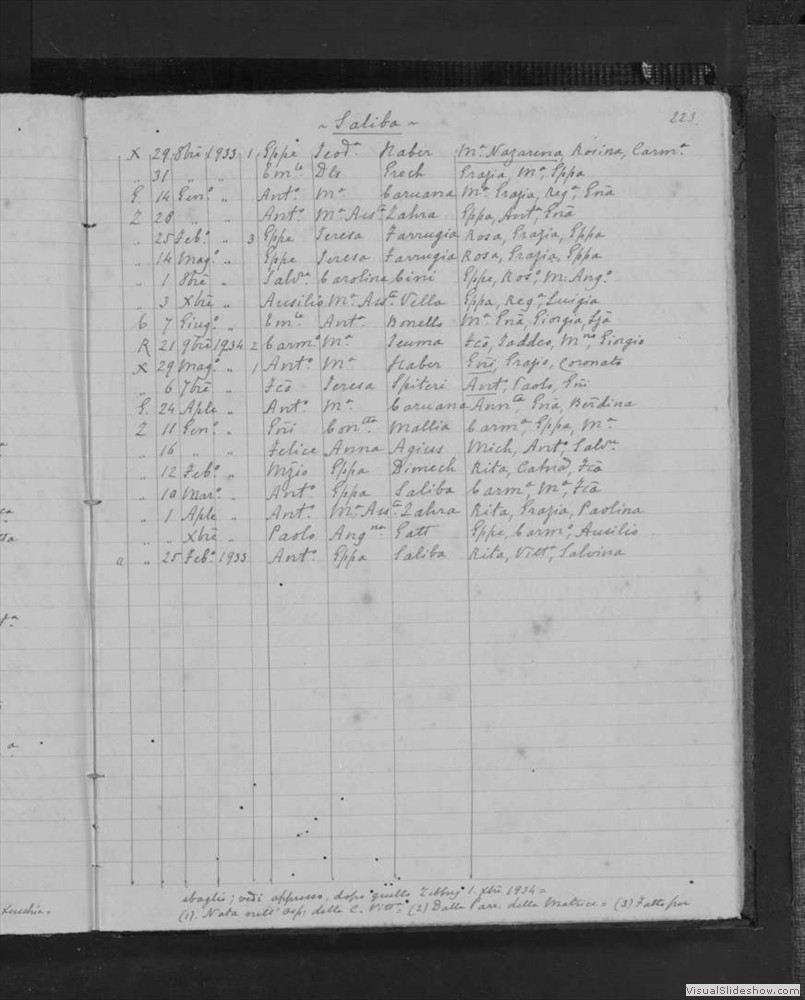 ~ Saliba ~
223.
X 29 8bre 1933 1 Gppe Teoda Haber Ma Nazarena, Rosina, Carma
" 31 " " Emle Dls Grech Grazia, Ma, Gppa
G. 14 Geno " Anto Ma Caruana Ma Grazia, Rega, Gna
Z 28 " " Anto Ma Assta Zahra Gppa, Anta, Gna
" 25 Febo " 3 Gppe Teresa Farrugia Rosa, Grazia, Gppa
" 14 Mago " Gppe Teresa Farrugia Rosa, Grazia, Gppa
" 1 8bre " Salvre Carolina Cini Gppa, Roso, M. Ango
" 3 Xbre " Ausilio Ma Assta Vella Gppa, Rega, Luigia
6 7 Giugo " Emle Anta Bonello Ma Gna, Giorgia,
R 21 9bre 1934 2 Carmo Ma Icuma Fco, Taddeo, Giorgio
X 29 Mago " 1 Anto Ma Haber Gni, Grazio, Coronato
" 6 7bre " Fco Teresa Spiteri Anto, Paolo, Gni
G. 24 Aple " Anto Ma Caruana Annta, Gna, Berdina
Z 11 Geno " Gni Contta Mallia Carma, Gppa, Ma
" 16 " " Felice Anna Agius Mich, Anto, Salvre
" 12 Febo " Mzio Gppa Dimech Rita, Fca
" 10 Maro " Anto Gppa Saliba Carma, Ma, Fca
" 1 Aple " Anto Ma Assta Zahra Rita, Grazia, Paolina
" " Xbre " Paolo Angna Gatt Gppe, Carmo, Ausilio
a " 25 Febo 1933 Anto Gppa Saliba Rita, Vitta, Salvina
sbaglio; vedi appresso, dopo quello Zebbug 1. Xbre 1934 =
(1). Nata nell' Osp: della C. Vitta = (2) Dalla Parr: della Matrice = (3) Fatto per